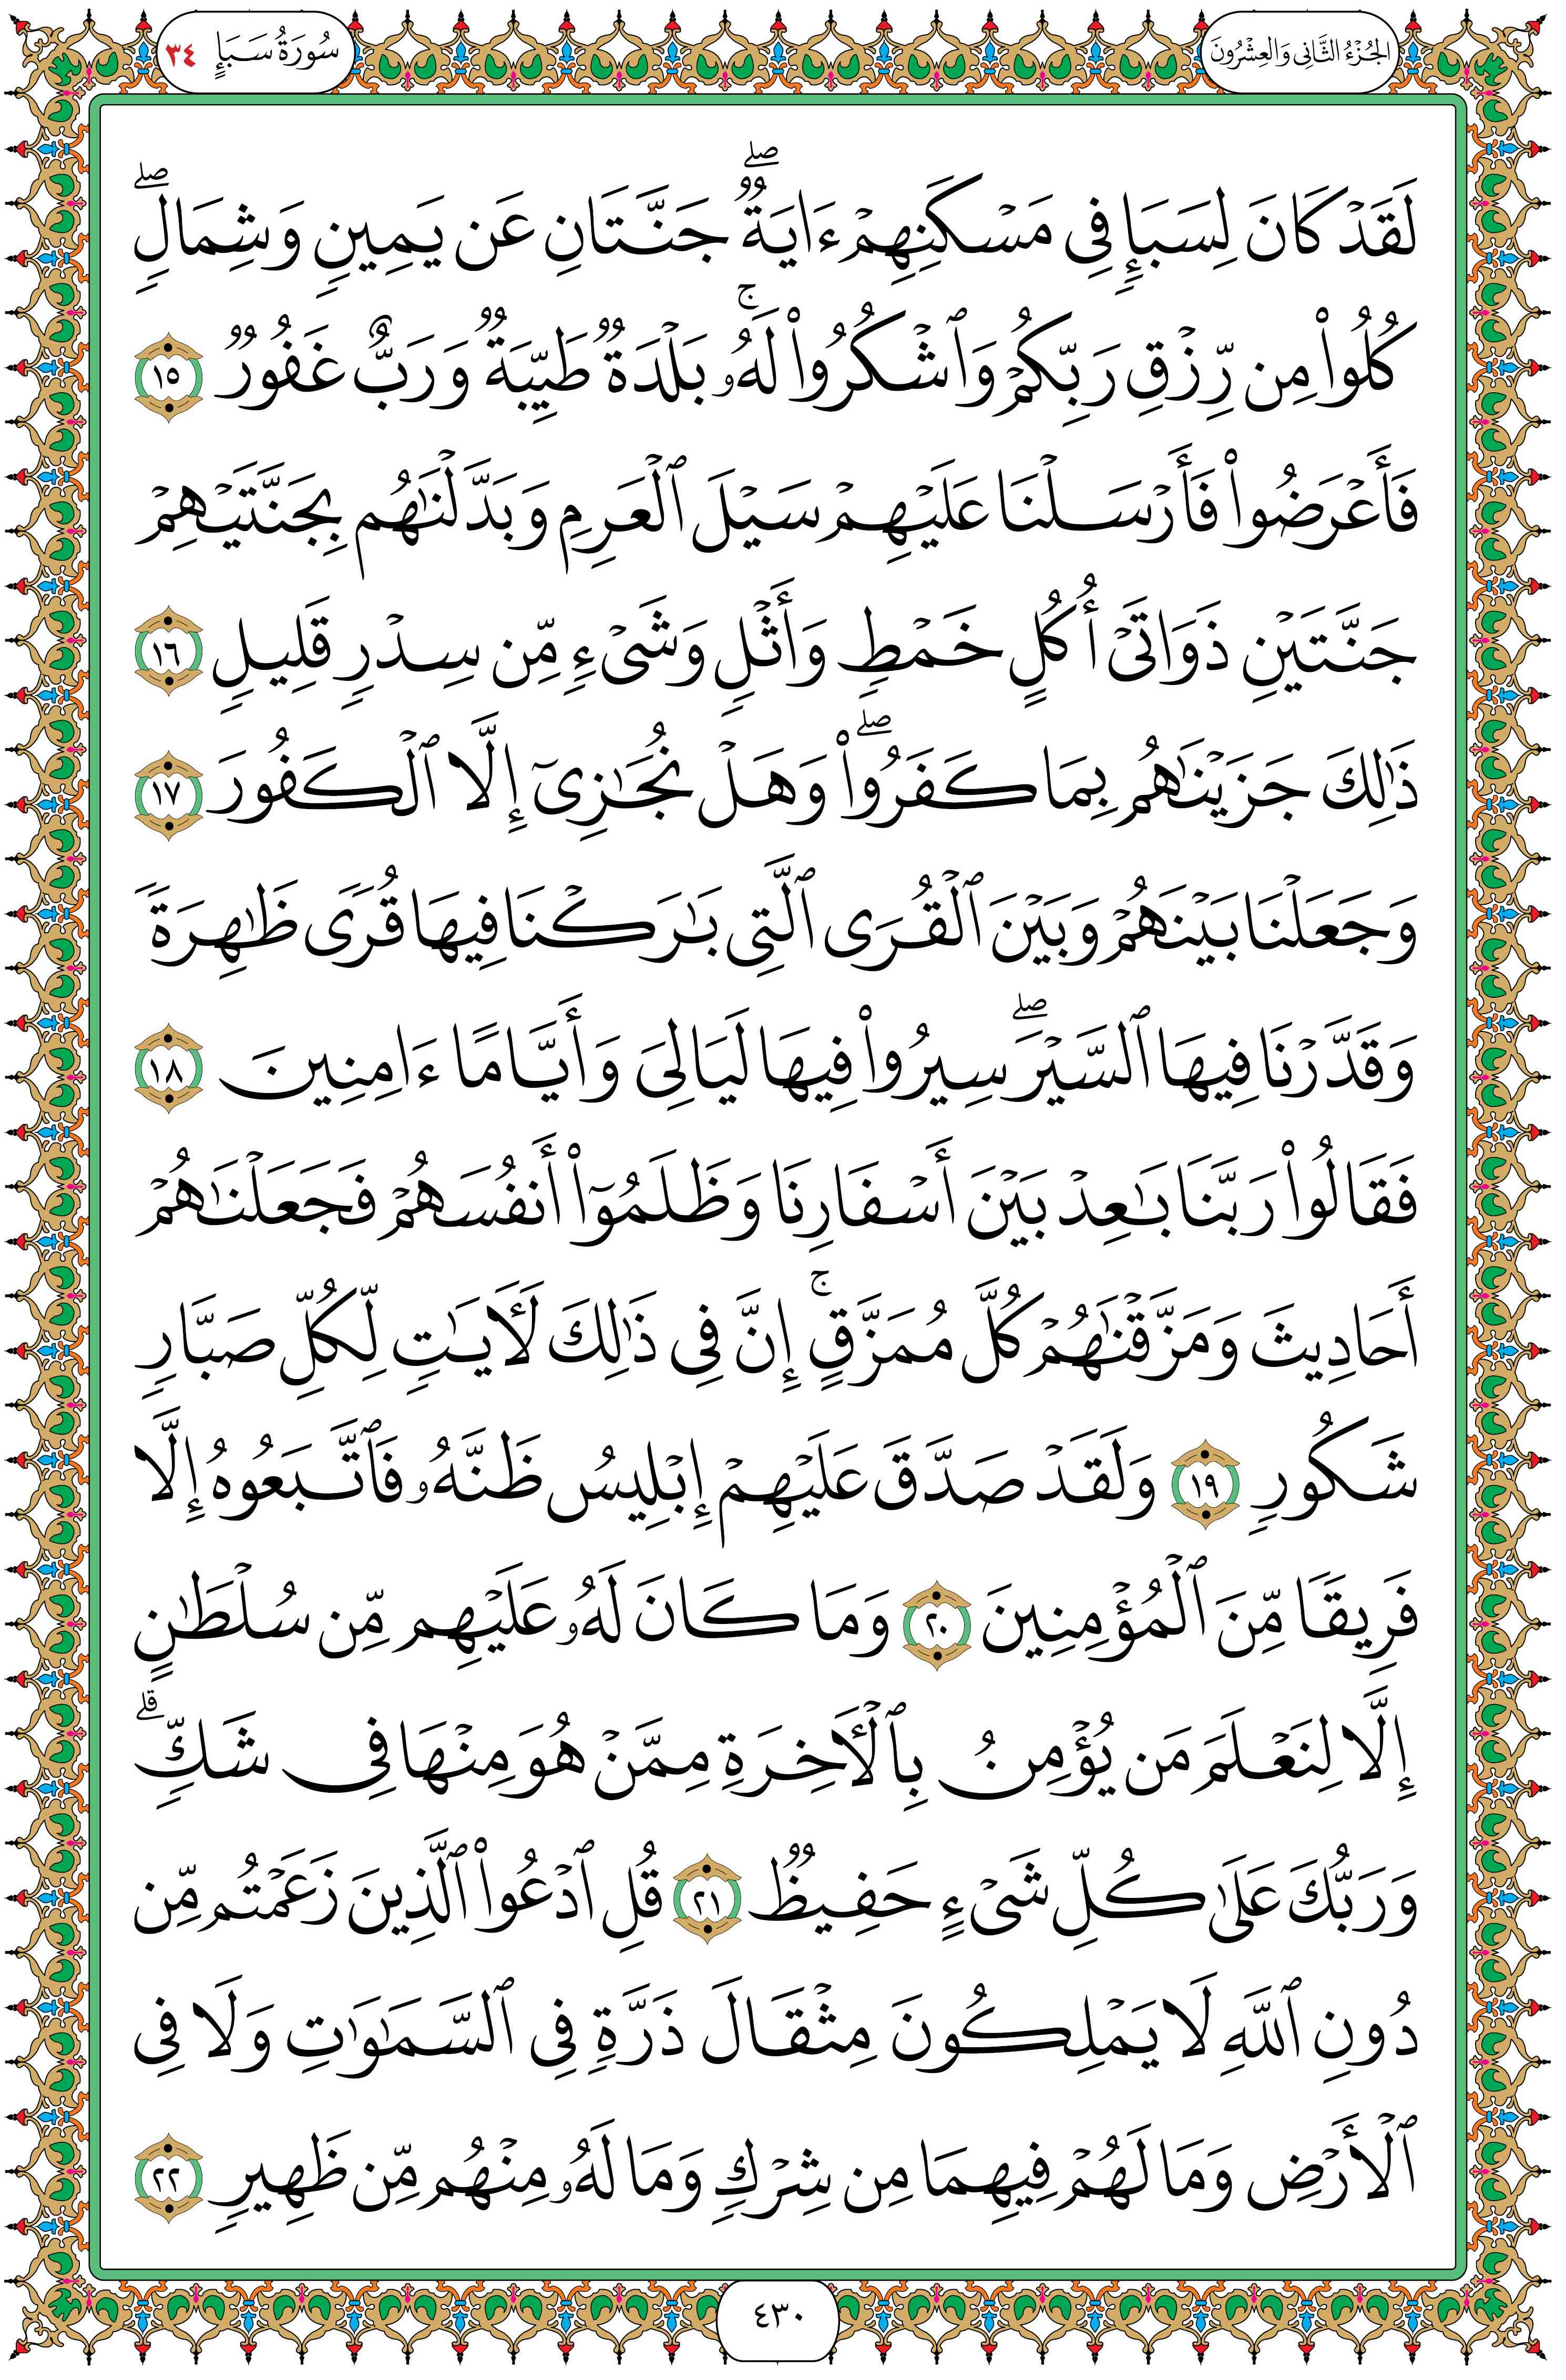 الجُزْءُ الثَّانِي وَالعِشْرُونَ
سُورَةُ سَبَإٍ ٣٤
لَقَدۡ كَانَ لِسَبَإٖ فِي مَسۡكَنِهِمۡ ءَايَةٞۖ جَنَّتَانِ عَن يَمِينٖ وَشِمَالٖۖ
كُلُواْ مِن رِّزۡقِ رَبِّكُمۡ وَٱشۡكُرُواْ لَهُۥۚ بَلۡدَةٞ طَيِّبَةٞ وَرَبٌّ غَفُورٞ ١٥
فَأَعۡرَضُواْ فَأَرۡسَلۡنَا عَلَيۡهِمۡ سَيۡلَ ٱلۡعَرِمِ وَبَدَّلۡنَٰهُم بِجَنَّتَيۡهِمۡ
جَنَّتَيۡنِ ذَوَاتَيۡ أُكُلٍ خَمۡطٖ وَأَثۡلٖ وَشَيۡءٖ مِّن سِدۡرٖ قَلِيلٖ ١٦
ذَٰلِكَ جَزَيۡنَٰهُم بِمَا كَفَرُواْۖ وَهَلۡ نُجَٰزِيٓ إِلَّا ٱلۡكَفُورَ ١٧
وَجَعَلۡنَا بَيۡنَهُمۡ وَبَيۡنَ ٱلۡقُرَى ٱلَّتِي بَٰرَكۡنَا فِيهَا قُرٗى ظَٰهِرَةٗ
وَقَدَّرۡنَا فِيهَا ٱلسَّيۡرَۖ سِيرُواْ فِيهَا لَيَالِيَ وَأَيَّامًا ءَامِنِينَ ١٨
فَقَالُواْ رَبَّنَا بَٰعِدۡ بَيۡنَ أَسۡفَارِنَا وَظَلَمُوٓاْ أَنفُسَهُمۡ فَجَعَلۡنَٰهُمۡ
أَحَادِيثَ وَمَزَّقۡنَٰهُمۡ كُلَّ مُمَزَّقٍۚ إِنَّ فِي ذَٰلِكَ لَأٓيَٰتٖ لِّكُلِّ صَبَّارٖ
شَكُورٖ ١٩ وَلَقَدۡ صَدَّقَ عَلَيۡهِمۡ إِبۡلِيسُ ظَنَّهُۥ فَٱتَّبَعُوهُ إِلَّا
فَرِيقٗا مِّنَ ٱلۡمُؤۡمِنِينَ ٢٠ وَمَا كَانَ لَهُۥ عَلَيۡهِم مِّن سُلۡطَٰنٍ
إِلَّا لِنَعۡلَمَ مَن يُؤۡمِنُ بِٱلۡأٓخِرَةِ مِمَّنۡ هُوَ مِنۡهَا فِي شَكّٖۗ
وَرَبُّكَ عَلَىٰ كُلِّ شَيۡءٍ حَفِيظٞ ٢١ قُلِ ٱدۡعُواْ ٱلَّذِينَ زَعَمۡتُم مِّن
دُونِ ٱللَّهِ لَا يَمۡلِكُونَ مِثۡقَالَ ذَرَّةٖ فِي ٱلسَّمَٰوَٰتِ وَلَا فِي
ٱلۡأَرۡضِ وَمَا لَهُمۡ فِيهِمَا مِن شِرۡكٖ وَمَا لَهُۥ مِنۡهُم مِّن ظَهِيرٖ ٢٢
٤٣٠